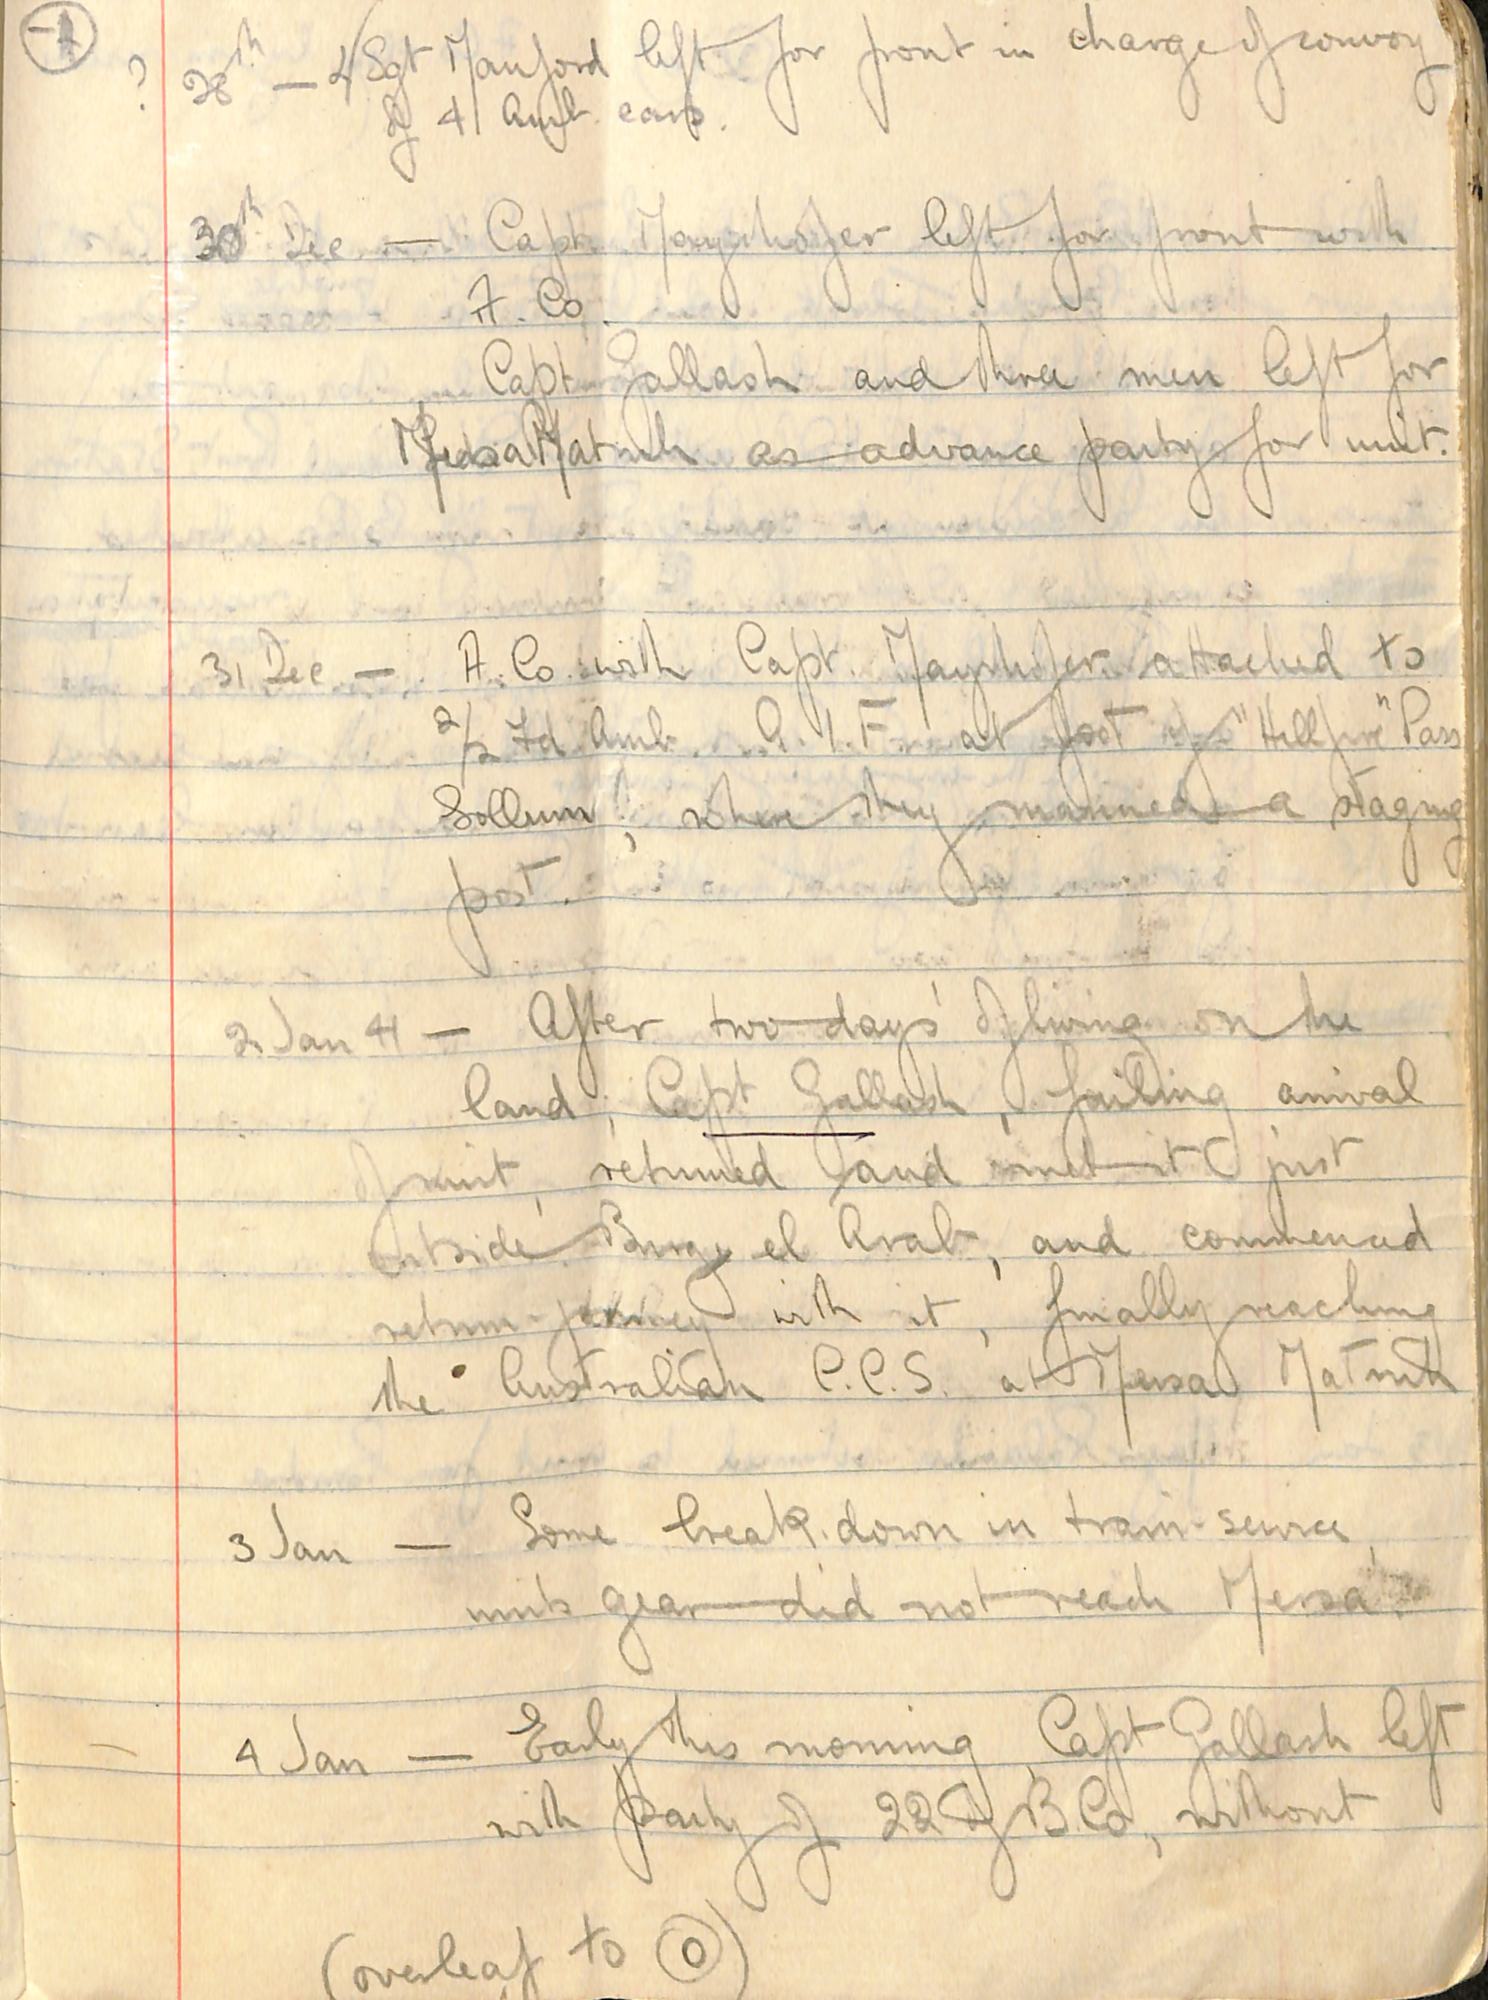 -1
? 28th — L/Sgt Manford left for front in charge of convoy
of 4 Amb. cars.
30th Dec — Capt. Mayrhofer left for front with
A. Co.
Capt Gallash and three men left for
Mersa Matruh as advance party for unit.
31 Dec — A. Co. with Capt. Mayrhofer attached to
2/2 Fd. Amb. A.I.F. at foot of "Hellfire" Pass
Sollum, where they manned a staging
post.
2 Jan 41 — After two days' of living on the
land, Capt Gallash, failing arrival
of unit, returned and met it just
outside Burg el Arab, and commenced
return-journey with it, finally reaching
the Australian C.C.S. at Mersa Matruh
3 Jan — Some break-down in train-service,
units gear did not reach Mersa.
4 Jan — Early this morning Capt Gallash left
with party of 22 of B.Co, without
(overleaf to 0)